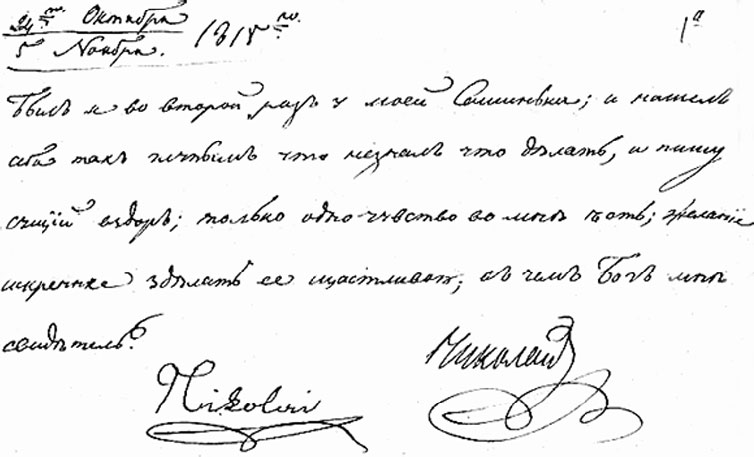 24го Октября 1815го. 1й
5 Ноября.
Былъ я во второй разъ у моей ; и нашелъ
себя такъ что незналъ что дѣлать, и пишу
сущій вздоръ; только одно чувство во мнѣ есть; желаніе
искренне здѣлать ее щастливою; въ чемъ Богъ мнѣ
свидѣтель.
Nikolai Николай